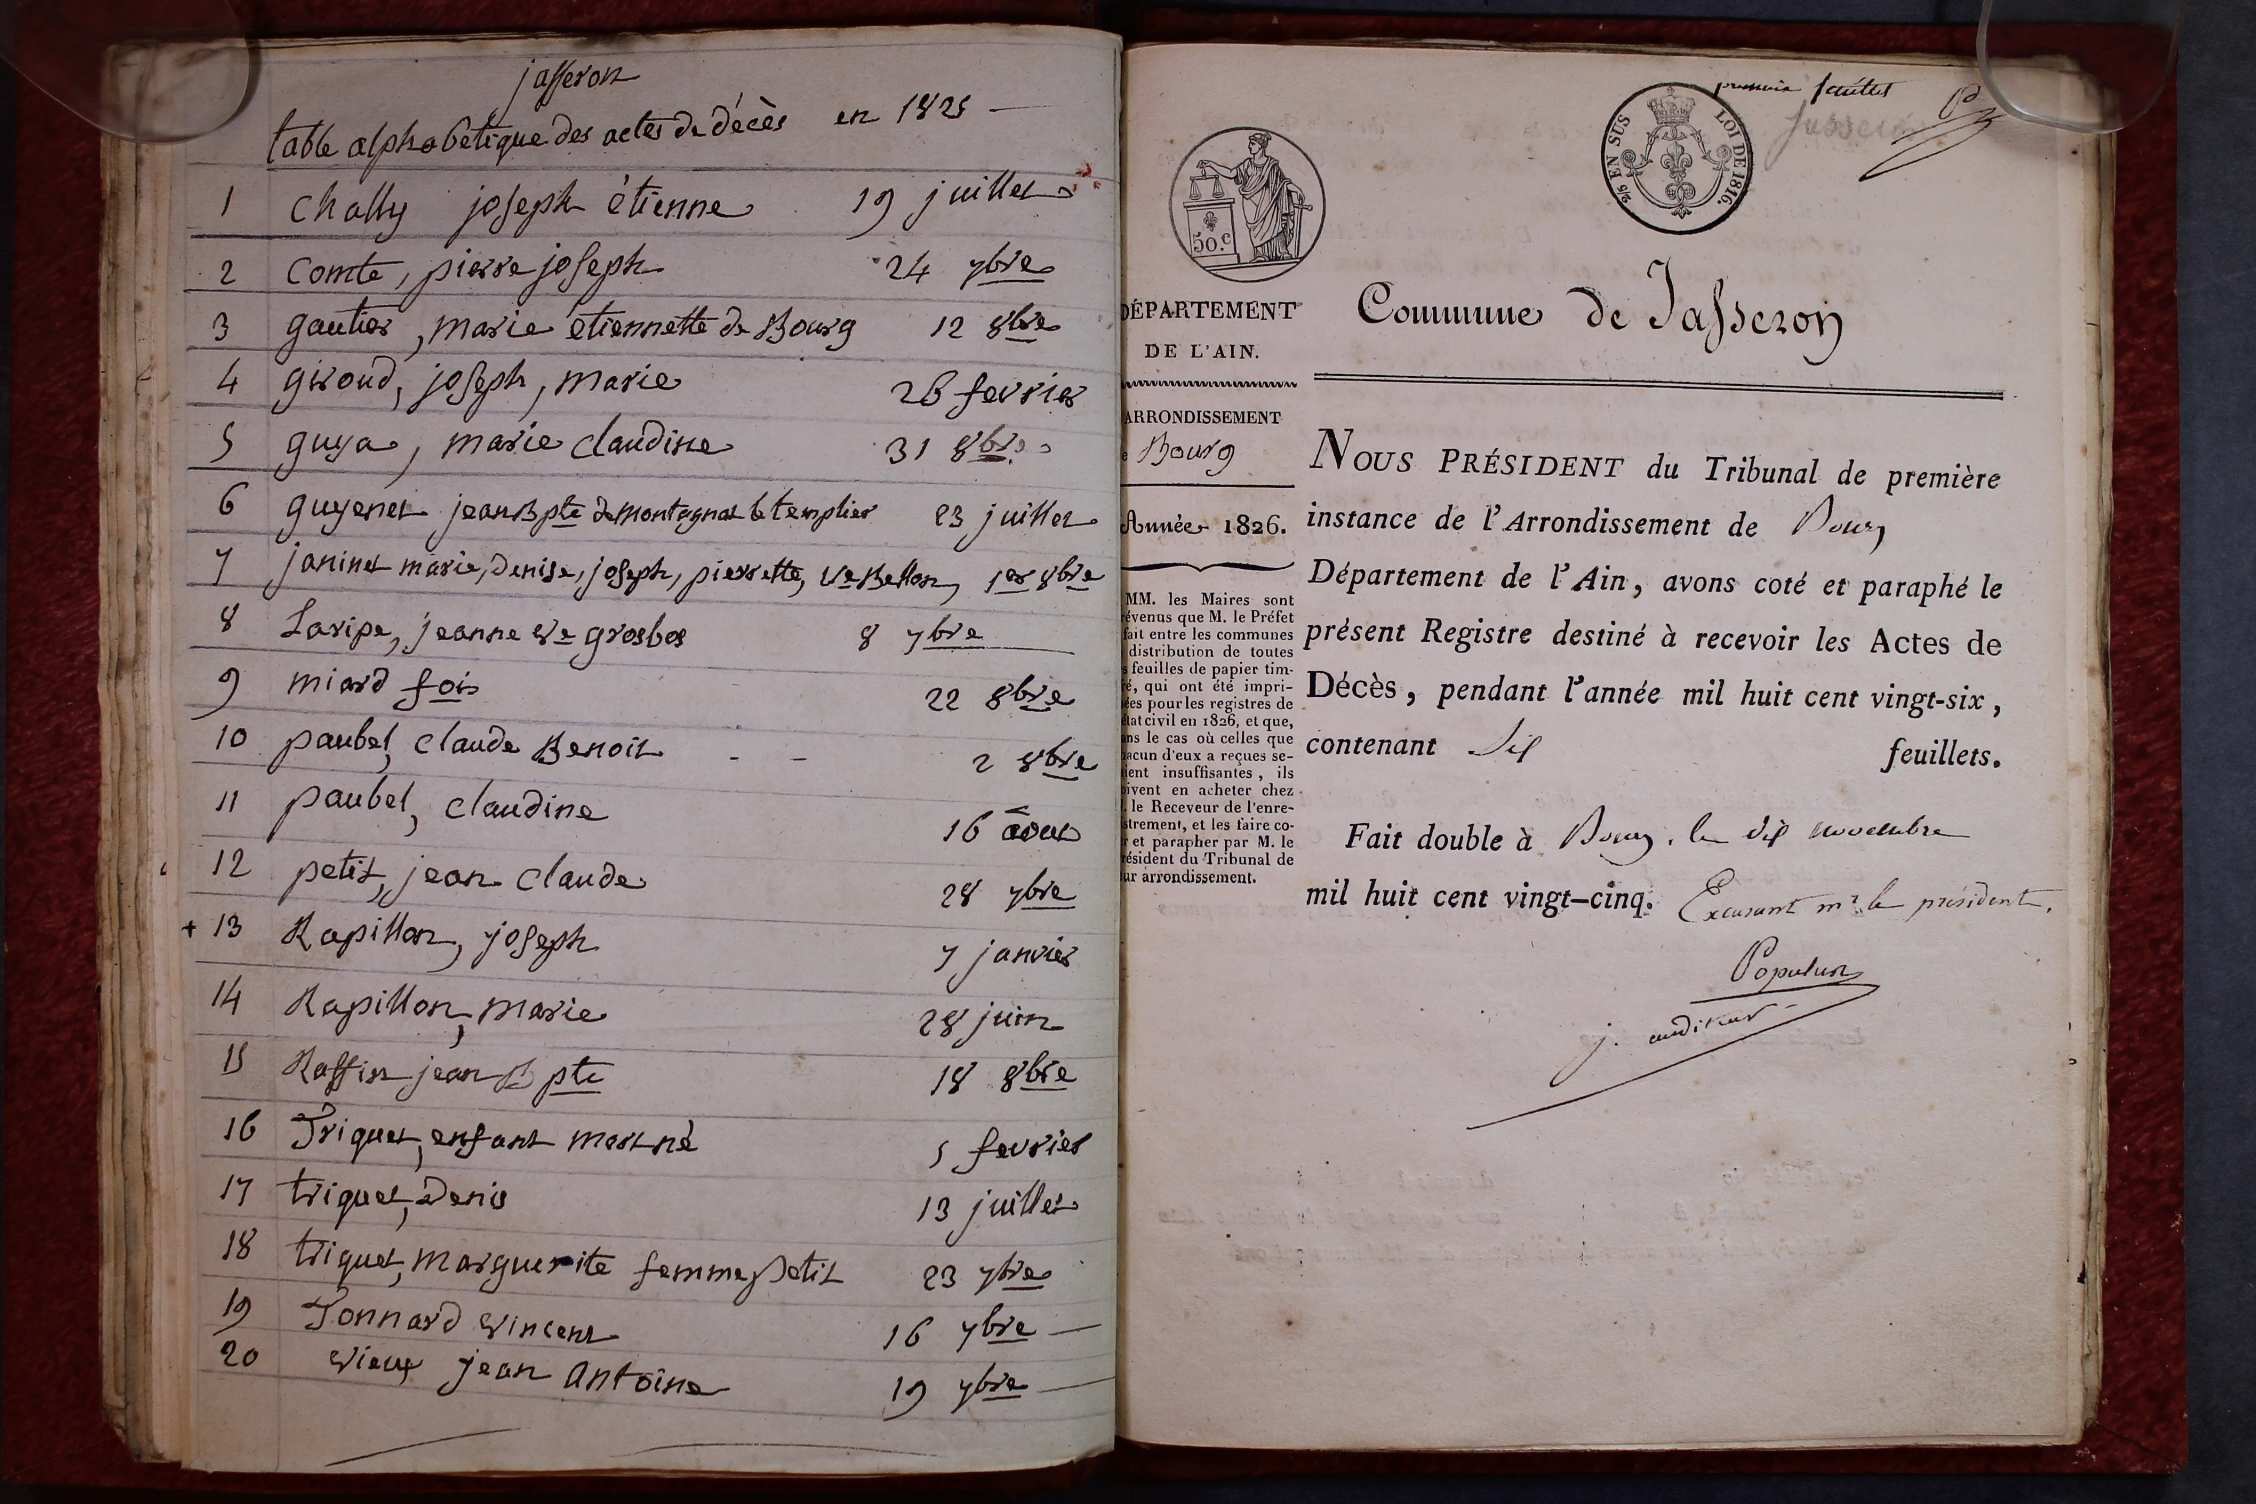 jasseron
table alphabétique des actes de décès en 1825
1 chally joseph étienne 19 juillet
2 comte, pierre joseph 24 7bre
3 gautier, marie étiennette de Bourg 12 8bre
4 giroud, joseph, marie 26 fevrier
5 guya, marie claudine 31 8bre
6 guyenet jean Bpte de montagnat le templier 23 juillet
7 janinet marie, denise, joseph, pierrette, ve Bellon, 1er 8bre
8 Laripe, jeanne ve grosbos 8 7bre
9 miard fois 22 8bre
10 paubel, claude Benoit - - 2 8bre
11 paubel, claudine 16 âout
12 petit, jean claude 28 7bre
+ 13 Rapillon, joseph 7 janvier
14 Rapillon, marie 28 juin
15 Raffin jean Bpte 18 8bre
16 Triquet, enfant mort né 5 fevrier
17 triquet, Denis 13 juillet
18 triquet, marguerite femme petit 23 7bre
19 Tonnard vincent 16 7bre
20 vieux jean antoine 19 7bre
premier feuillet
Jasseron
2/5 EN SUS LOI DE 1816.
50.c
DÉPARTEMENT
DE L'AIN.
Commune de Jasseron
ARRONDISSEMENT
e Bourg
Année 1826.
MM. les Maires sont
révenus que M. le Préfet
fait entre les communes
distribution de toutes
s feuilles de papier tim-
ré, qui ont été impri-
ées pour les registres de
état civil en 1826, et que,
ans le cas où celles que
hacun d'eux a reçues se-
ient insuffisantes, ils
oivent en acheter chez
. le Receveur de l'enre-
strement, et les faire co-
r et parapher par M. le
résident du Tribunal de
ur arrondissement.
NOUS PRÉSIDENT du Tribunal de première
instance de l'Arrondissement de Bourg
Département de l'Ain, avons coté et paraphé le
présent Registre destiné à recevoir les Actes de
Décès, pendant l'année mil huit cent vingt-six,
contenant dix feuillets.
Fait double à Bourg, le dix novembre
mil huit cent vingt-cinq. Excusant mr le président.
Populus
j. auditeur